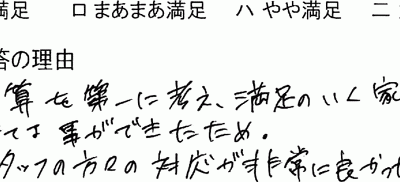 満足　ロ まあまあ満足　ハ やや満足　ニ
答の理由
算を第一に考え、満足のいく家
ては事ができたため。
タッフの方々の対応が非常に良かっ